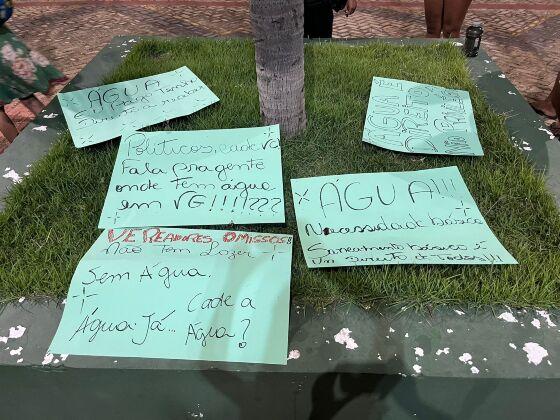 ÁGUA
Políticos, cade vc
Fala pra gente
onde Tem água
em VG!!!!????
ÁGUA
DIREITO
ÁGUA!!!
Necessidad básica
Saneamento básico é
Um Direito d Todos!!!
VEREADORES OMISSOS!!
Não Tem Lazer
Sem Água.
Cade a
Água Já... Água?